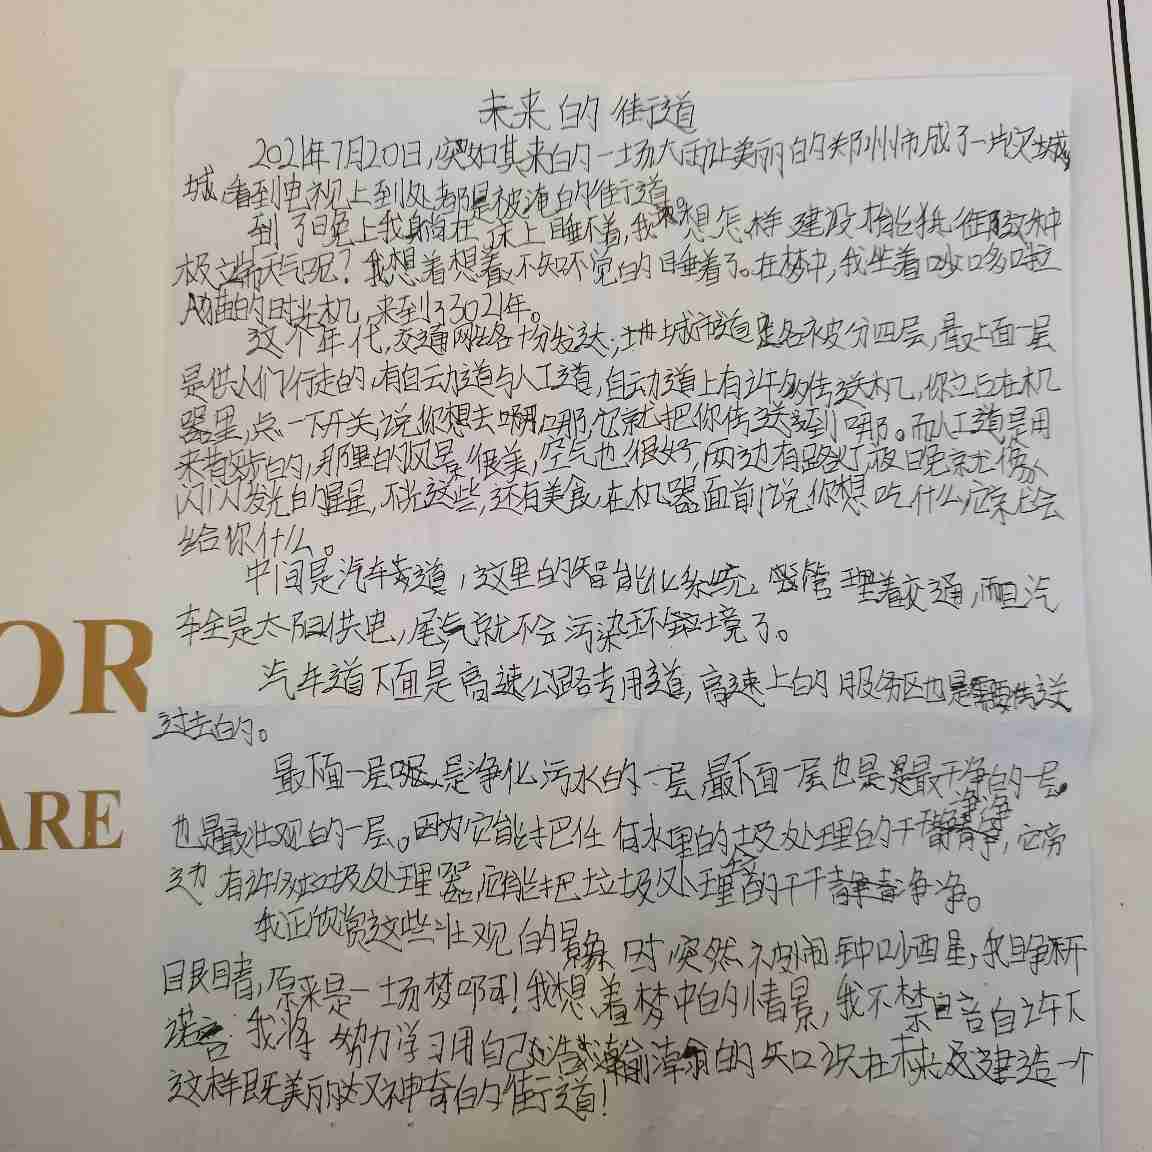 未来的街道
2021年7月20日,突如其来的一场大雨让美丽的郑州市成了一片灾城
城,看到电视上到处都是被淹的街道。
到了晚上我躺在床上睡不着,我想怎样建设抵御这种
极端天气呢?我想着想着,不知不觉的睡着了。在梦中,我坐着哆啦
A猫的时光机,来到了3021年。
这个年代,交通网络十分发达,城市道路被分四层,最上面一层
是供人们行走的,有自动道与人工道,自动道上有许多传送机,你立在机
器里,点一下开关,说你想去哪,它就把你传送到哪。而人工道是用
来散步的,那里的风景很美,空气也很好,两边有路灯,夜晚就像
闪闪发光的星星,不光这些,还有美食,在机器面前说你想吃什么,它就会
给你什么。
中间是汽车道,这里的智能化系统管理着交通,而且汽
车全是太阳供电,尾气就不会污染环境了。
汽车道下面是高速公路专用道,高速上的服务区也是需要传送
过去的。
最下面一层呢,是净化污水的一层,最下面一层也是最干净的一层。
也是最壮观的一层。因为它能把任何水里的垃圾处理的干干净净,它旁
边有许多垃圾处理器,能把垃圾处理的干干净净。
我正欣赏这些壮观的景象时,突然被闹钟吵醒,我睁开
眼睛,原来是一场梦啊!我想着梦中的情景,我不禁暗自许下
诺言:我将努力学习用自己浩瀚的知识在未来建造一个
这样既美丽又神奇的街道!
OR
ARE